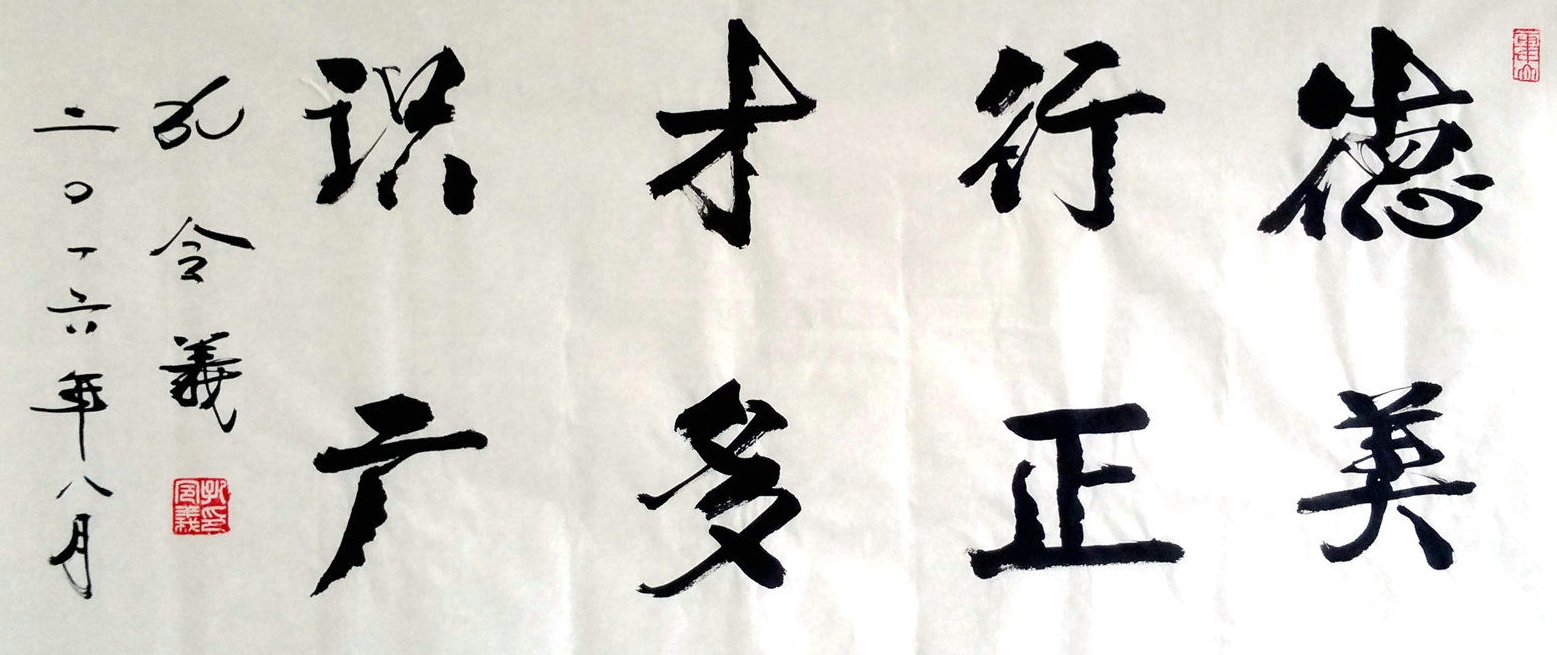 德美
行正
才多
识广
孔令義
二〇一六年八月
孔令義印